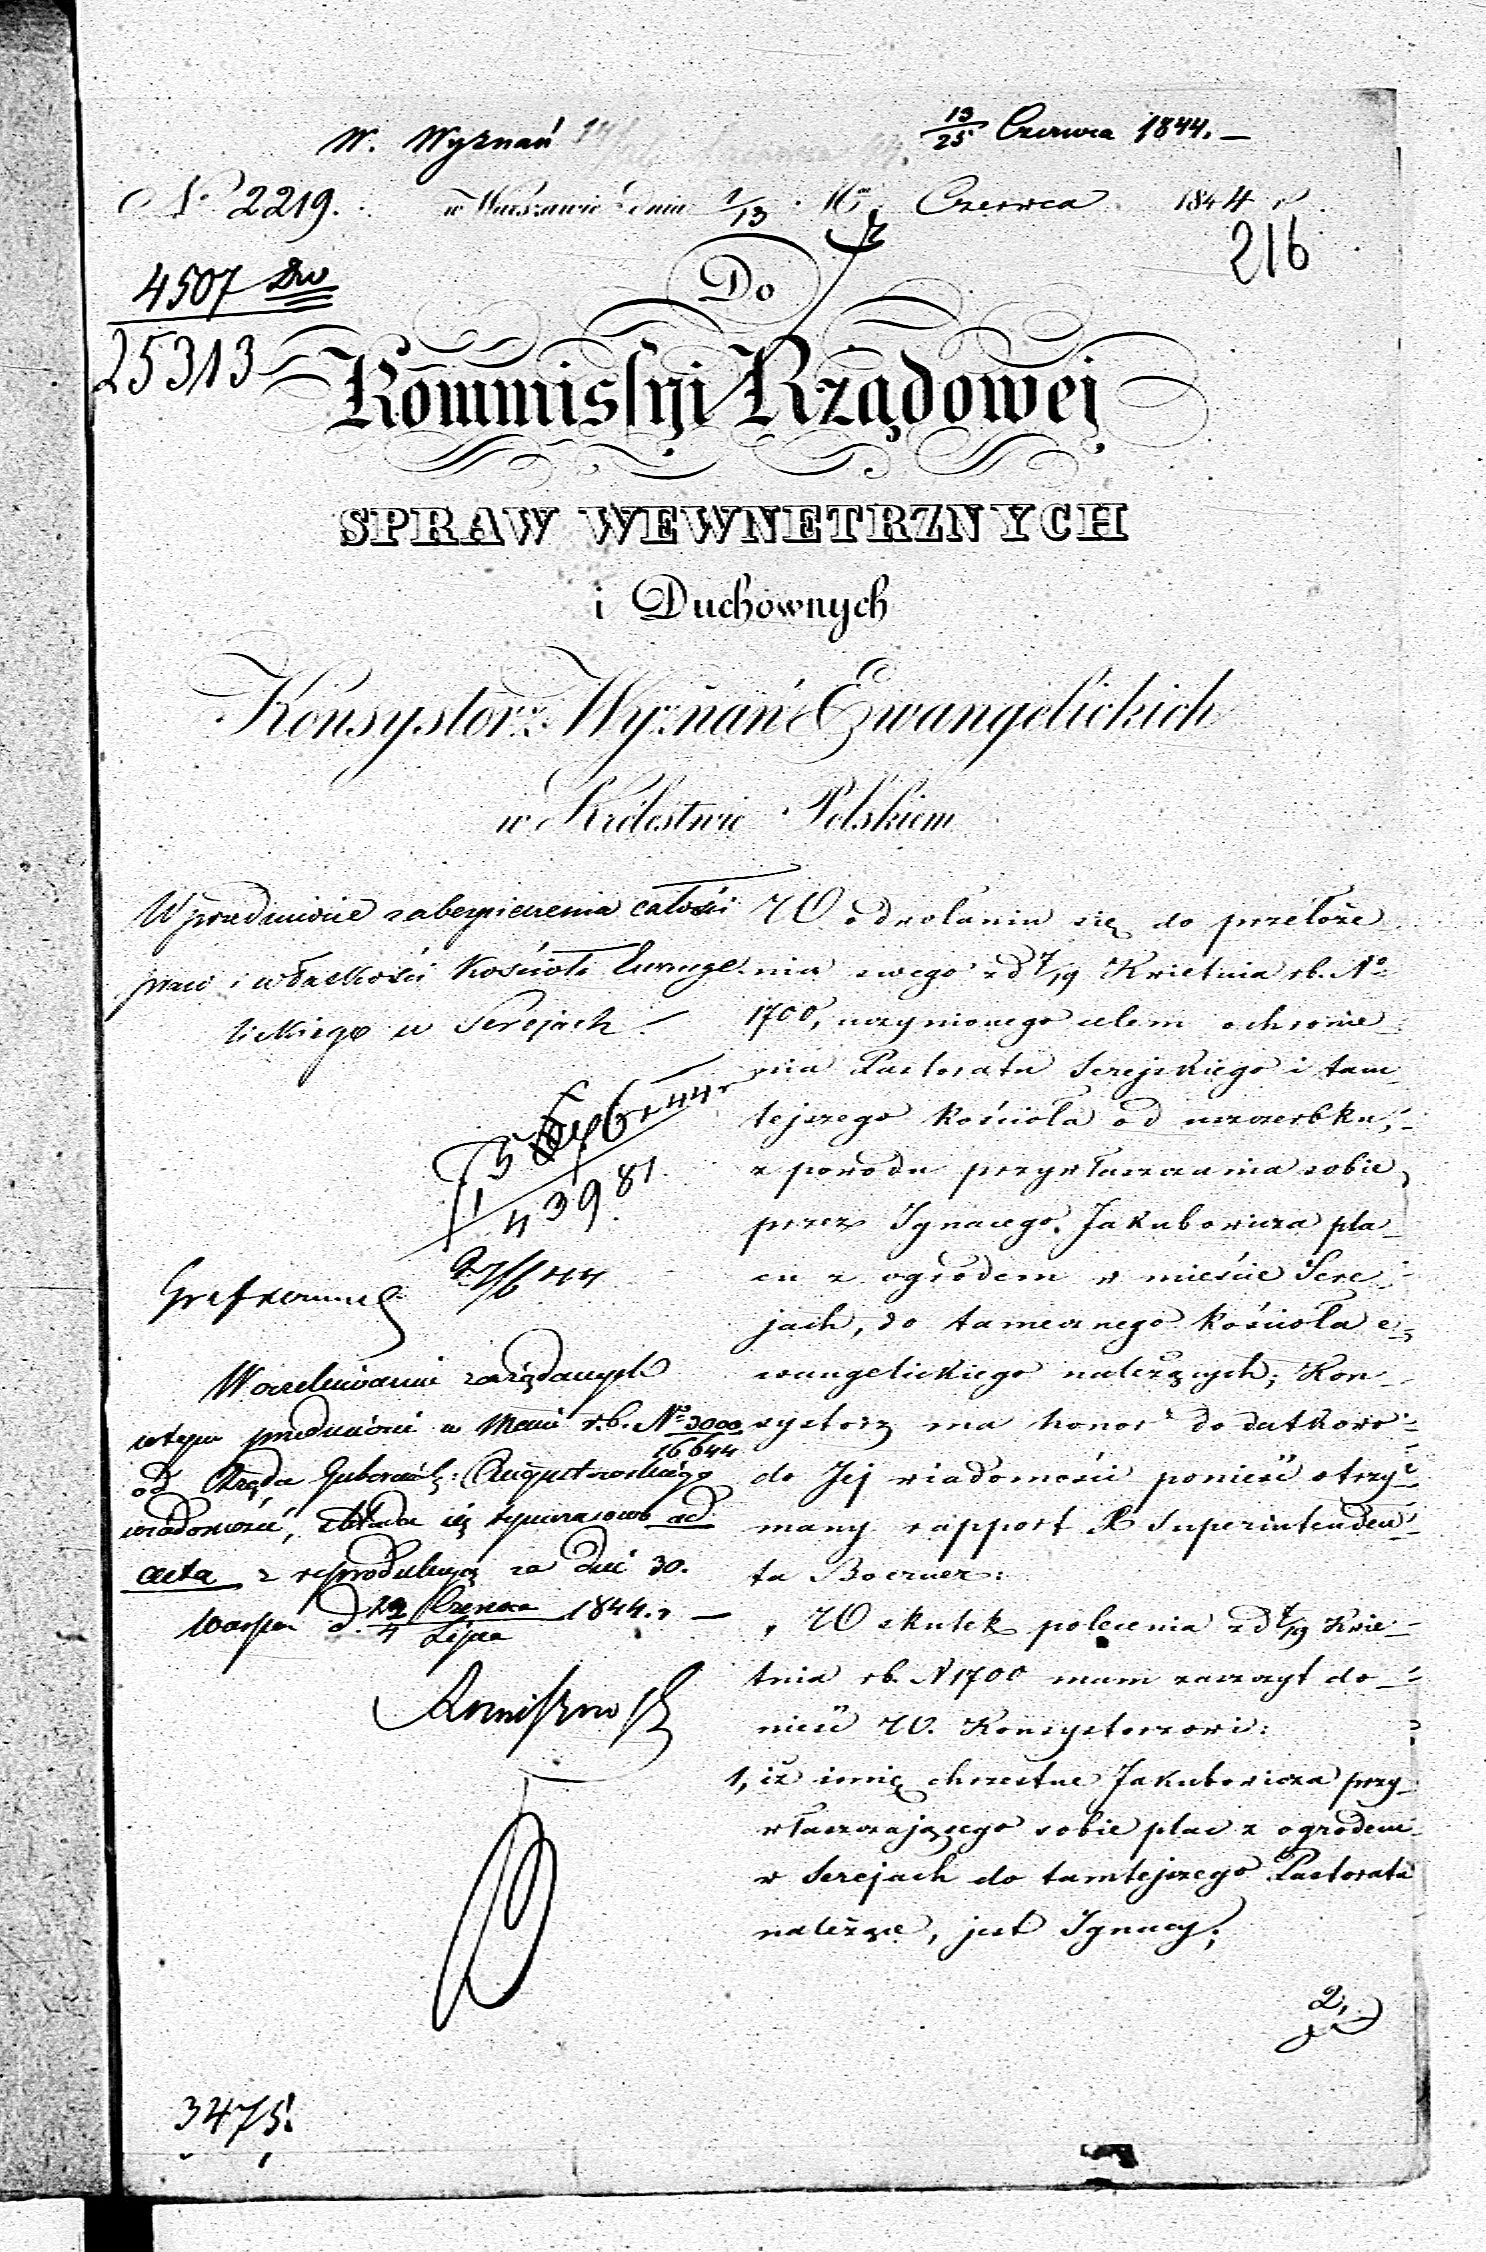 W. Wyznań
13/25 Czerwca 1844. —
No 2219. w Warszawie dnia 1/13 Czerwca 1844 r
216
4507
25313
Do
Kommissyi Rządowej
SPRAW WEWNETRZNYCH
i Duchownych
Konsystorz Wyznań Ewangelickich
w Królestwie Polskiem
W przedmiocie zabezpieczenia całości
praw i własności Kościoła Ewange-
lickiego w Serejach
439 81
27/6 44
W oczekiwaniu zażądanych
w tym przedmiocie w Maju r.b. No 3000/16644
od Rządu Gubernial: Augustowskiego
wiadomości, składa się tymczasowo ad
acta z reprodukcją za dni 30.
d. 22 Czerwca/4 Lipca 1844. r —
W odwołaniu się do przełoże-
nia swego z d 7/19 Kwietnia rb. No
1700, uczynionego celem ochronie-
nia Pastoratu Serejskiego i tam-
tejszego Kościoła od uszczerbku,
z powodu przywłaszczania sobie
przez Ignacego Jakubowicza pla-
cu z ogrodem w mieście Sere-
jach, do tamecznego Kościoła e-
wangelickiego należących; Kon-
systorz ma honor dodatkowo
do Jej wiadomości ponieść otrzy-
many rapport X Superintenden-
ta Boerner:
„ W skutek polecenia z d 7/19 Kwie-
tnia rb. N 1700 mam zaszczyt do-
nieść W. Konsystorzowi:
1, iż imię chrzestne Jakubowicza przy-
właszczającego sobie plac z ogrodem
w Serejach do tamtejszego Pastoratu
należące, jest Ignacy;
2,
3475.